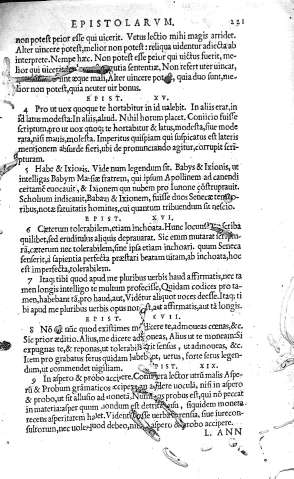 EPISTOLARVM. 221
non potest prior esse qui uicerit. Vetus lectio mihi magis arridet.
Alter uincere potest, melior non potest: reliqua uidentur adiecta ab
interprete. Nempe hæc. Non potest esse peior qui uictus fuerit, me-
lior qui uicerit sententiit. Non refert uter uincat,
æque malus sit. Alter uincere potest, quia duo sunt, me
lior non potest, quia neuter uir bonus.
EPIST. XV.
4 Pro ut uox quoque te hortabitur in id ualebit. In alijs erat, in
id latus modesta. In alijs, aliud. Nihil horum placet. Conijcio fuisse
scriptum, pro ut uox quoque te hortabitur et latus, modesta, siue mode
rata, nisi mauis, molesta. Imperitus quispiam qui suspicatus est lateris
mentionem absurde fieri, ubi de pronunciando agitur, corrupit scri-
pturam.
5 Habe & Ixionis. Vide num legendum sit. Babys & Ixionis, ut
intelligas Babym Marsiæ fratrem, qui ipsum Apollinem ad canendi
certamen euocauit, & Ixionem qui nubem pro Iunone construprauit.
Scholium indicauit, Baban & Ixionem, fuisse dnes Senecæ
ribus, notæ fatuitatis homines, cui quantum tribuendum sit nescio.
EPIST. XVI.
6 Cæterum tolerabilem, etiam inchoata. Hunc locum scriba
quilibet, sed eruditulus aliquis deprauarat. Sic enim mutarat scriptu-
rã, cæterum nec tolerabilem, sine ipsa etiam inchoari. quum Seneca
senserit, a sapientia perfecta præstari beatam uitam, ab inchoata, hoc
est imperfecta, tolerabilem.
7 Itaque tibi quod apud me pluribus uerbis haud affirmatis, nec ta
men longis intelligo te multum profecisse. Quidam codices pro ta-
men, habebant tã, pro haud, aut, Videtur aliquot noces deesse. Itaque ti
bi apud me pluribus uerbis opus non est, aut affirmatis, aut tã longis.
EPIST. XVII.
8 Non est nunc quod existimes me dicere te, admoueas cœnas, &c.
Sic prior æditio. Alias, me dicere Alius ut te moneam: Si
expugnas te, & reponas, ut tolerabilis sit sensus, ut admoueas, &c.
Item pro grabatus serus quidam habet, uerus, forte serus legen-
dum, ut commendet uigiliam. EPIST. XIX.
9 In aspero & probo accipere. Lector utrũ malis Aspe-
rũ & Probum grãmaticos accipere an uoculã, nisi in aspero
& probo, ut sit allusio ad monetã. Nummus probus est, qui nõ peccat
in materia: asper quum nondum est detritus usu, siquidem moneta
recens asperitatem habet. Videntur esse uerba iureconsulto-
sultorum, nec uolo quod debeo, aspero & probo accipere.
L. ANN